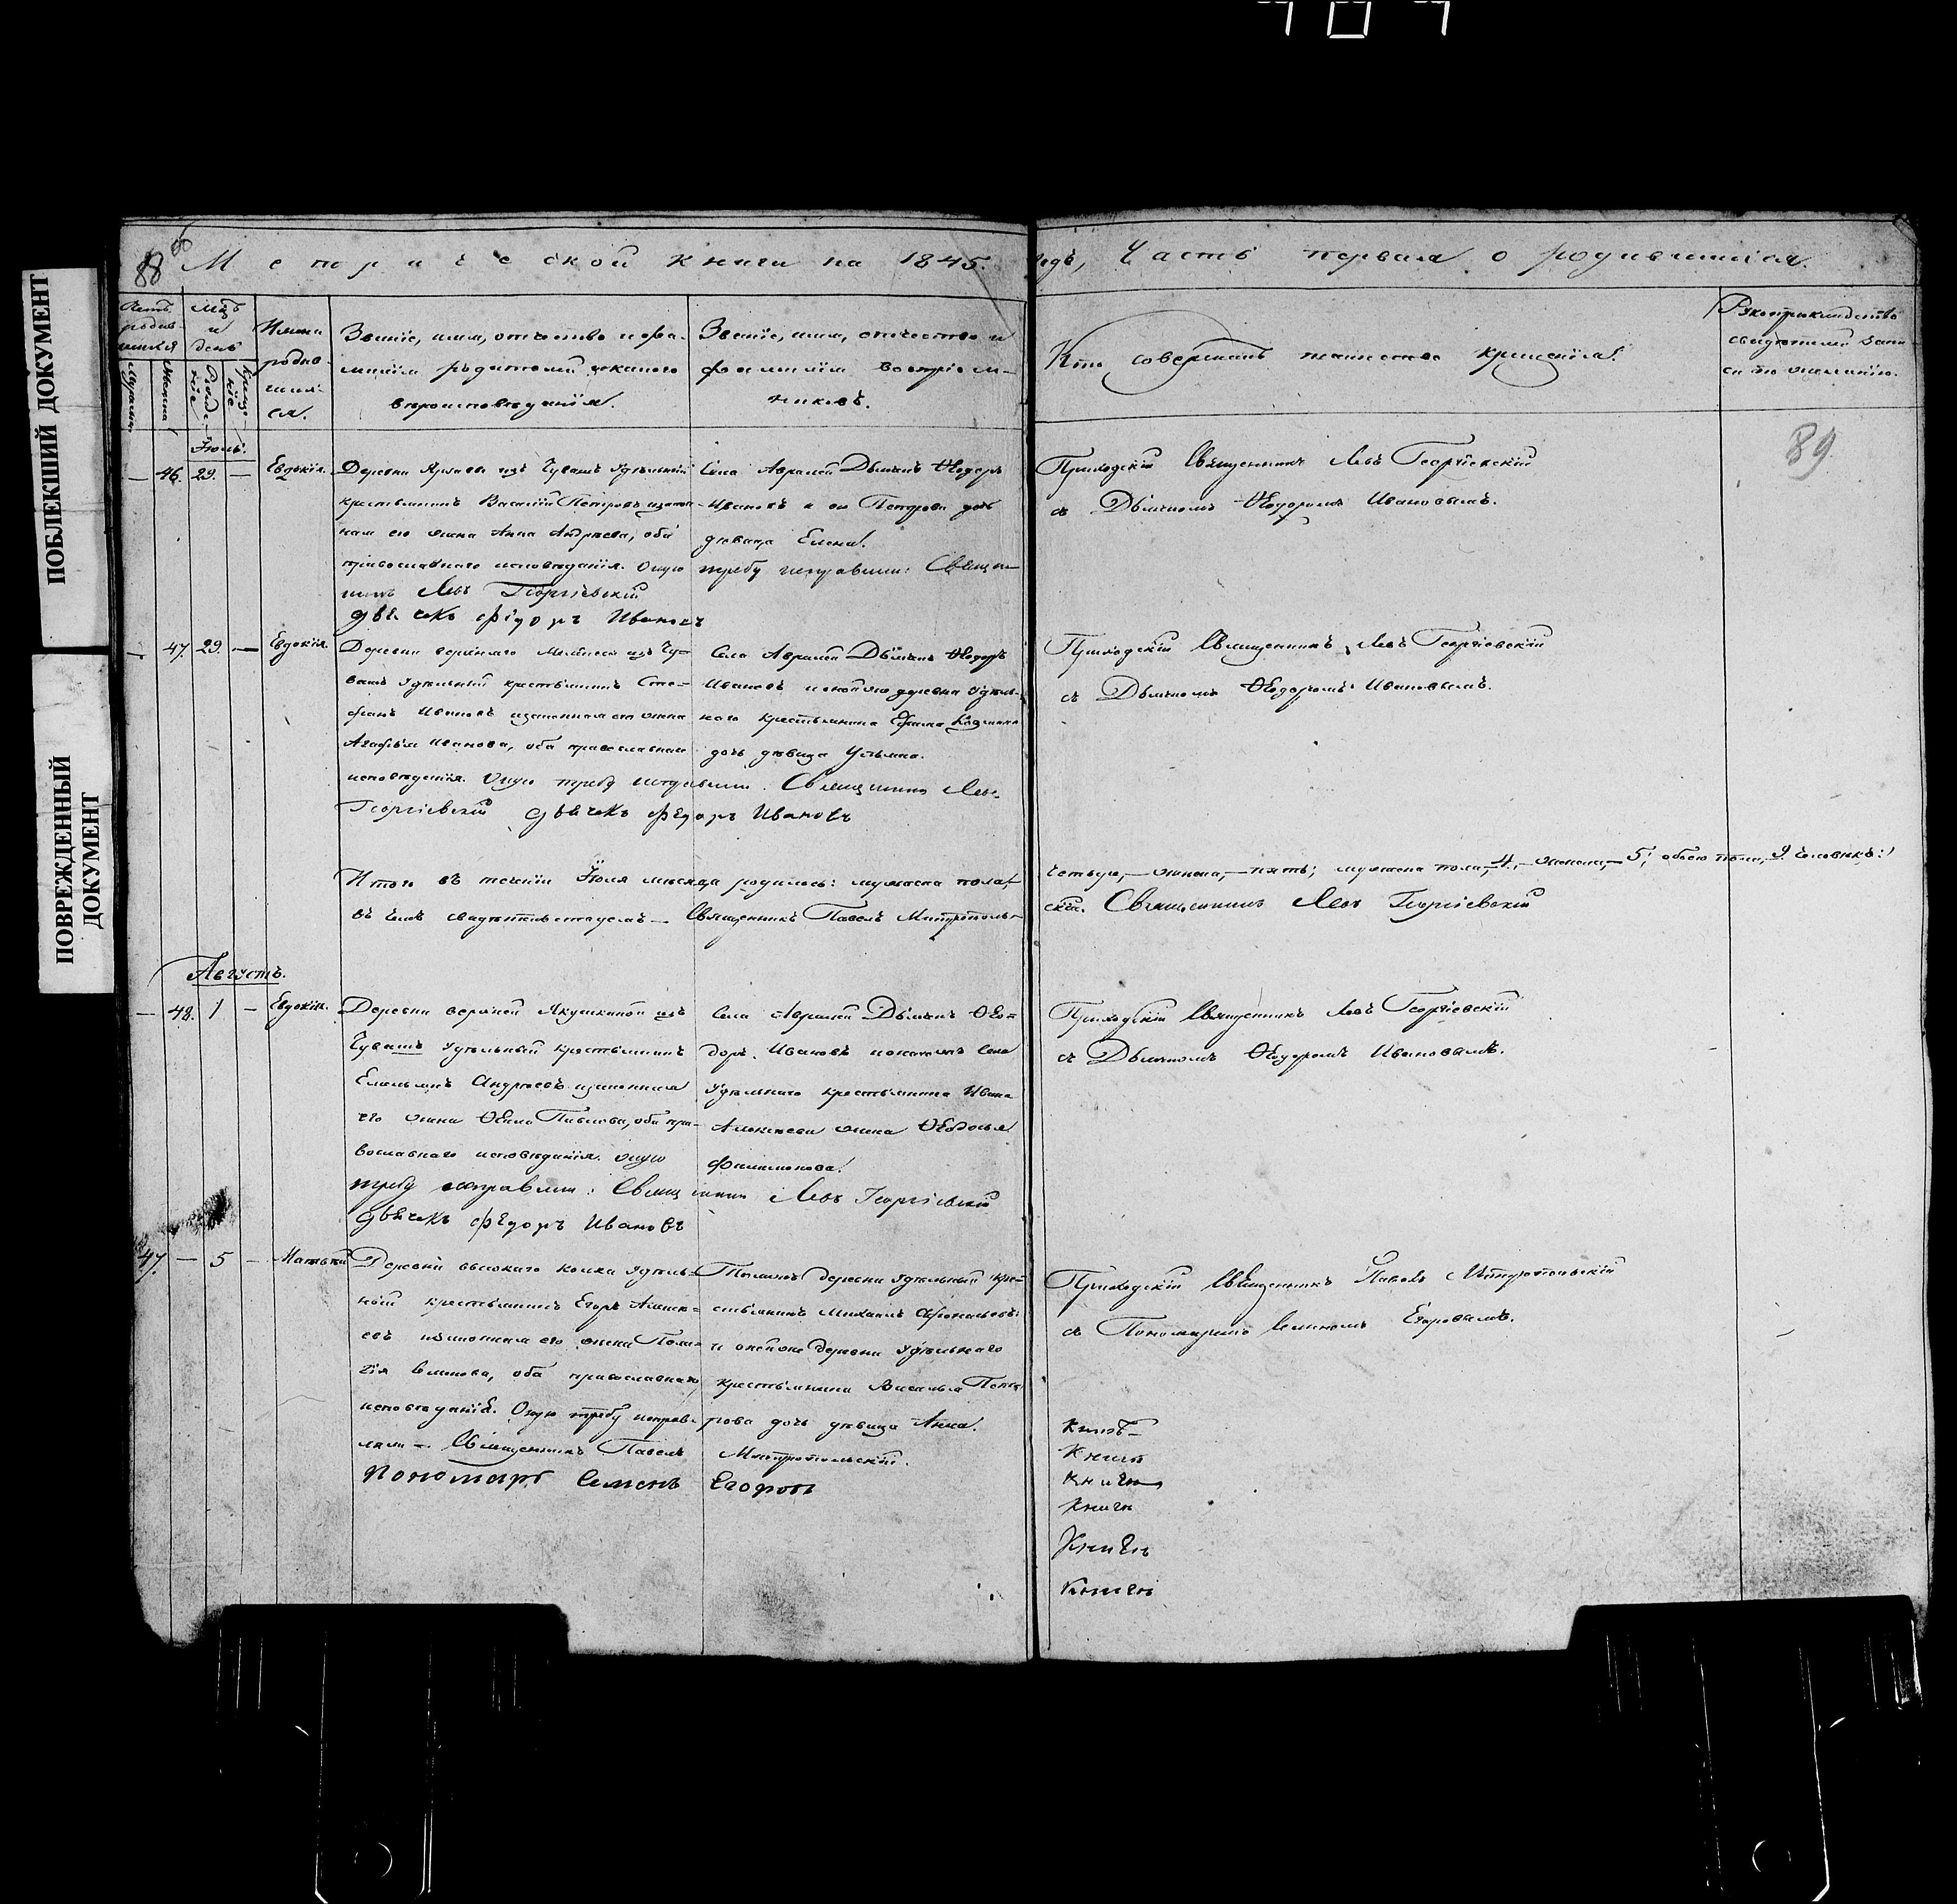 ПОБЛЕКШИЙ ДОКУМЕНТ
ПОВРЕЖДЕННЫЙ
ДОКУМЕНТ
88
Метрической книги на 1845.
годъ, Часть первая о родившихся.
89
Мѣс.
и
день
Имена
родив-
шихся.
Званіе, имя, отчество и фа-
милія родителей, и какого
вѣроисповѣданія.
Званіе, имя, отчество и
фамилія воспріем-
никовъ.
Кто совершалъ таинство крещенія.
Рукоприкладство
свидѣтелей запи
си по желанію.
Іюль.
— 46. 29. —
Евдокія.
Деревни изъ Чувашъ Удѣльный
крестьянинъ Василій Петровъ и закон-
ная его жена Анна Андреева, оба
православнаго исповѣданія. Оную
требу исправляли: Священ-
никъ Левъ Георгіевскій
дьячекъ Федоръ Ивановъ
Села Авралей Дьячекъ Ѳеодоръ
Ивановъ и Петрова дочь
дѣвица Елена.
Приходскій Священникъ Левъ Георгіевскій
съ Дьячкомъ Ѳеодоромъ Ивановымъ.
— 47. 29. —
Евдокія.
Деревни верхняго изъ Чу-
вашъ Удѣльный крестьянинъ Сте-
фанъ Ивановъ и законная его жена
Агафья Иванова, оба православнаго
исповѣданія. Оную требу исправляли: Священникъ Левъ
Георгіевскій дьячекъ Федоръ Ивановъ
Села Авралей Дьячекъ Ѳеодоръ
Ивановъ и оной же деревни Удѣль-
наго крестьянина
дочь дѣвица Ульяна.
Приходскій Священникъ Левъ Георгіевскій
съ Дьячкомъ Ѳеодоромъ Ивановымъ.
Итого въ теченіи Іюля мѣсяца родилось: мужеска пола
четыре, — женска, — пять; мужеска пола, — 4, — женска, — 5; обоего пола, 9. человѣкъ:
въ чемъ свидѣтельствуемъ — Священникъ Павелъ Митрополь-
скій. Священникъ Левъ Георгіевскій
Августъ.
— 48. 1 —
Евдокія.
Деревни верхней Якушкиной изъ
Чувашъ Удѣльный крестьянинъ
Емельянъ Андреевъ и законная
его жена Павлова, оба пра-
вославнаго исповѣданія. Оную
требу исправляли: Священникъ Левъ Георгіевскій
дьячекъ Федоръ Ивановъ
Села Авралей Дьячекъ Ѳео-
доръ Ивановъ и села
Удѣльнаго крестьянина Ивана
Алексѣева жена Ѳеодосья
Филимонова.
Приходскій Священникъ Левъ Георгіевскій
съ Дьячкомъ Ѳеодоромъ Ивановымъ.
47. — 5 —
Матвѣй
Деревни высокаго колка Удѣль-
ной крестьянинъ Егоръ Алексѣ-
евъ и законная его жена
оба православнаго
исповѣданія. Оную требу исправ-
ляли — Священникъ Павелъ Митропольскій.
Пономарь Семенъ Егоровъ
деревни Удѣльный кре-
стьянинъ Михаилъ
и оной же деревни Удѣльнаго
крестьянина Василья Пет-
рова дочь дѣвица Анна.
Приходскій Священникъ Павелъ Митропольскій
съ Пономаремъ Семеномъ Егоровымъ.
Книгъ
Книги
Книги
Книги